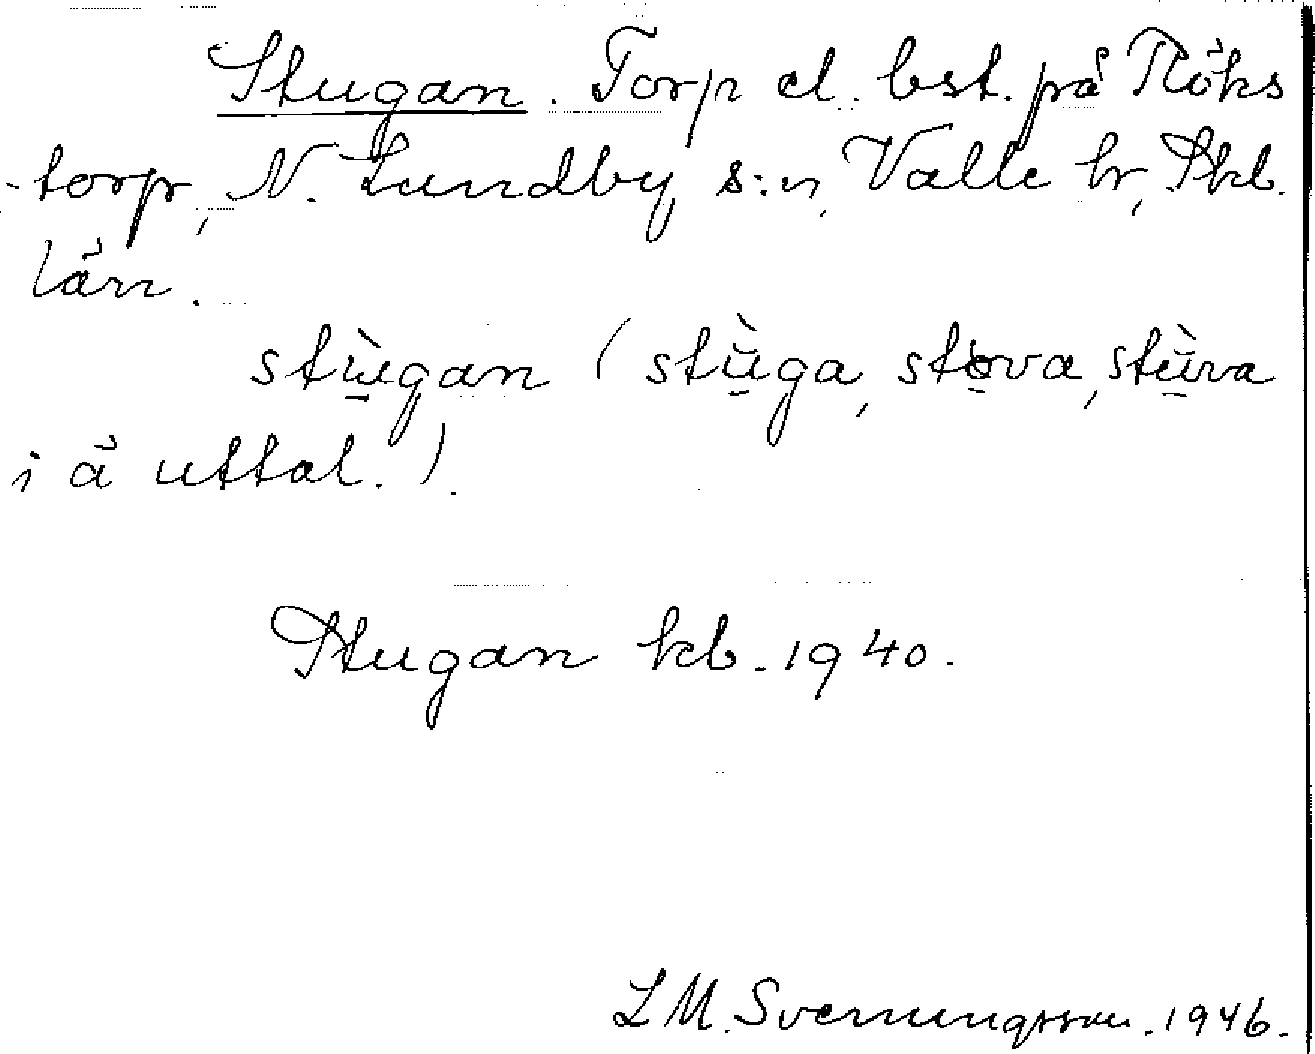 Stugan. Torp el. bst. på Röks
-torp, N. Lundby s:n, Valle hr, Skb.
län.
stùgan (stùga, stova, stùva
i ä uttal.).
Stugan kb. 1940.
L M. Svenungsson. 1946.